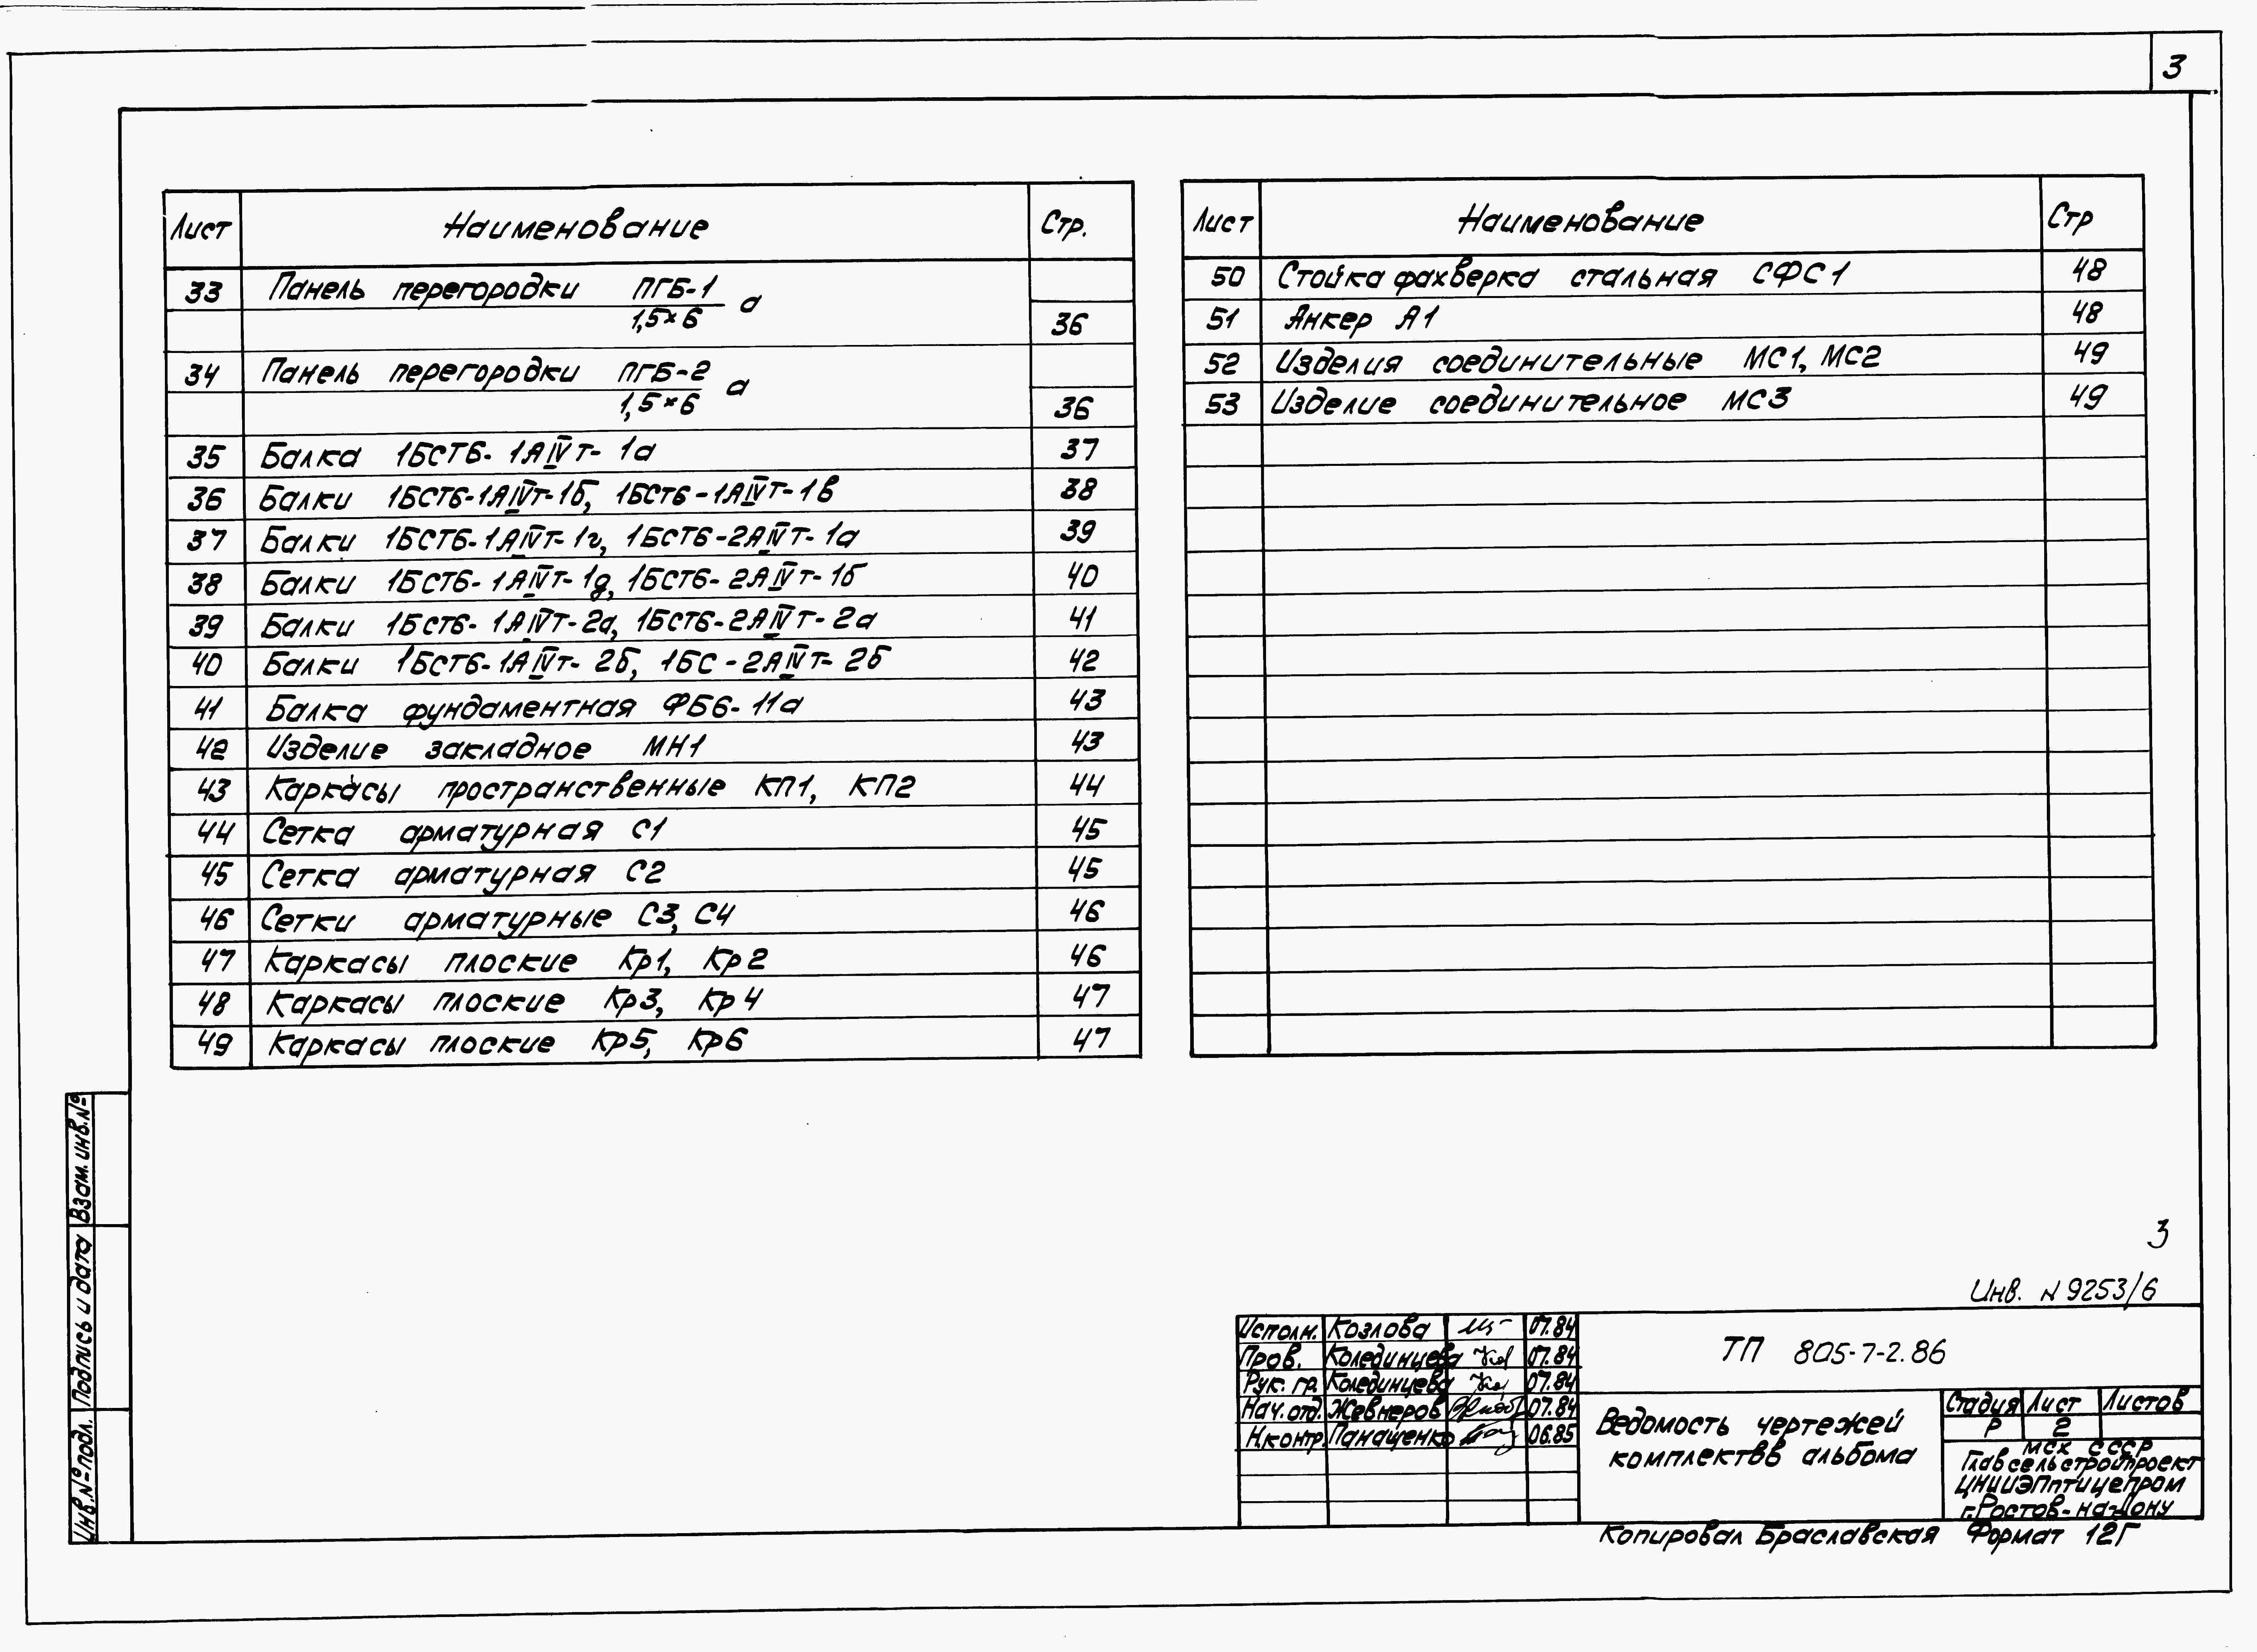 3
Лист Наименование Стр.
33 Панель перегородки ПГБ-1 а
1,5×6 36
34 Панель перегородки ПГБ-2 а
1,5×6 36
35 Балка 1БСТ6-1АIVт-1а 37
36 Балки 1БСТ6-1АIVт-1б, 1БСТ6-1АIVт-1в 38
37 Балки 1БСТ6-1АIVт-1г, 1БСТ6-2АIVт-1а 39
38 Балки 1БСТ6-1АIVт-1д, 1БСТ6-2АIVт-1б 40
39 Балки 1БСТ6-1АIVт-2а, 1БСТ6-2АIVт-2а 41
40 Балки 1БСТ6-1АIVт-2б, 1БС-2АIVт-2б 42
41 Балка фундаментная ФБ6-11а 43
42 Изделие закладное МН1 43
43 Каркасы пространственные КП1, КП2 44
44 Сетка арматурная С1 45
45 Сетка арматурная С2 45
46 Сетки арматурные С3, С4 46
47 Каркасы плоские Кр1, Кр2 46
48 Каркасы плоские Кр3, Кр4 47
49 Каркасы плоские Кр5, Кр6 47
Лист Наименование Стр
50 Стойка фахверка стальная СФС1 48
51 Анкер А1 48
52 Изделия соединительные МС1, МС2 49
53 Изделие соединительное МС3 49
Взам. инв.№
Подпись и дата
Инв.№подл.
3
Инв. N 9253/6
Исполн. Козлова 07.84
Пров. Колединцева 07.84
Рук. гр. Колединцева 07.84
Нач.отд. Жевнеров 07.84
Н.контр. Панащенко 06.85
ТП 805-7-2.86
Ведомость чертежей
комплектвв альбома
Стадия Лист Листов
Р 2
МСХ СССР
Главсельстройпроект
ЦНИИЭПптицепром
г.Ростов-на-Дону
Копировал Браславская Формат 12Г